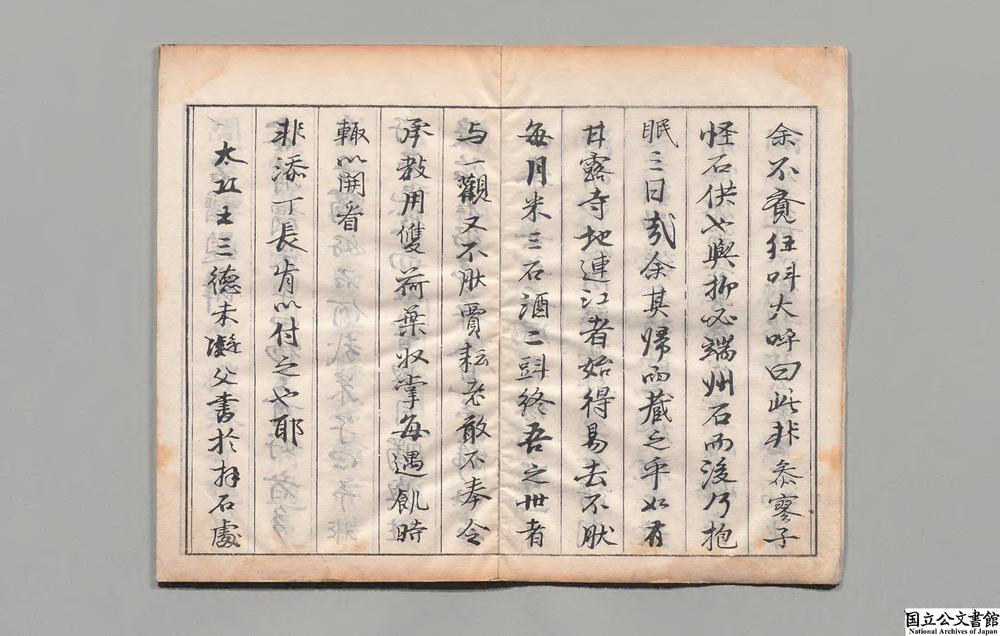 余不覺狂呌大呼曰此非叅寥子
怪石供也與抑必端州石而後乃抱
眠三日哉余其歸而藏之乎如有
甘露寺地連江者始得易去不肰
每月米三石酒二㪷終吾之世者
与一觀又不肰賈耘老敢不奉令
承教用雙荷葉收掌每遇飢時
輙以開看
非添丁長肯以付之也耶
太丘士三德未凝父書於拜石處
国立公文書館
National Archives of Japan